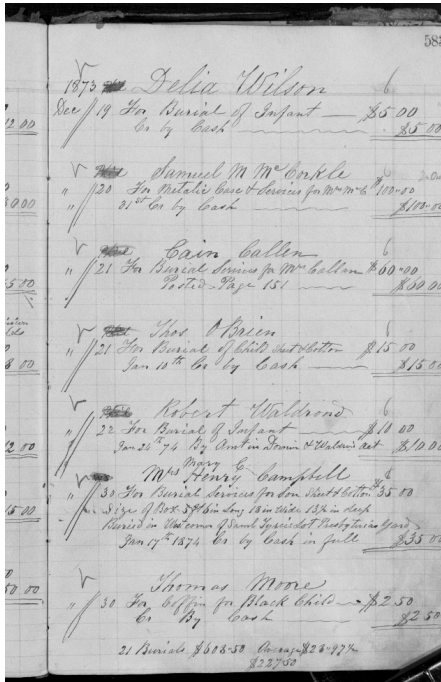 583
1873 Delia Wilson 6
Dec 19 For Burial of Infant $5.00
Cr by Cash $5.00
Samuel M McCorkle
" 20 For Metalic Case & Services for Mrs McC $100-00
" 31st Cr by Cash $100-00
Cain Callen 6
" 21 For Burial Services for Mrs Callan $60-00
Posted Page 151 $60.00
Thos O'Brien 6
" 21 For Burial of Child Shert & Cotton $15 00
Jan 10th Cr by Cash $15 00
Robert Waldrond 6
" 22 For Burial of Infant $10 00
Jan 24th 74 By Amt in & act $10.00
Mary E.
Mrs Henry Campbell 6
" 30 For Burial Services for Son Shert & Cotton $35 00
Size of Box 5 ft 6 in Long 18 in Wide 13½ in deep
Buried in West corner of Saml Lot Presbyterian Yard
Jan 17th 1874 Cr by Cash in full $35 00
Thomas Moore
" 30 For Coffin for Black Child $2 50
Cr By Cash $2 50
21 Burials $603-50 Average $28-97½
$227.50